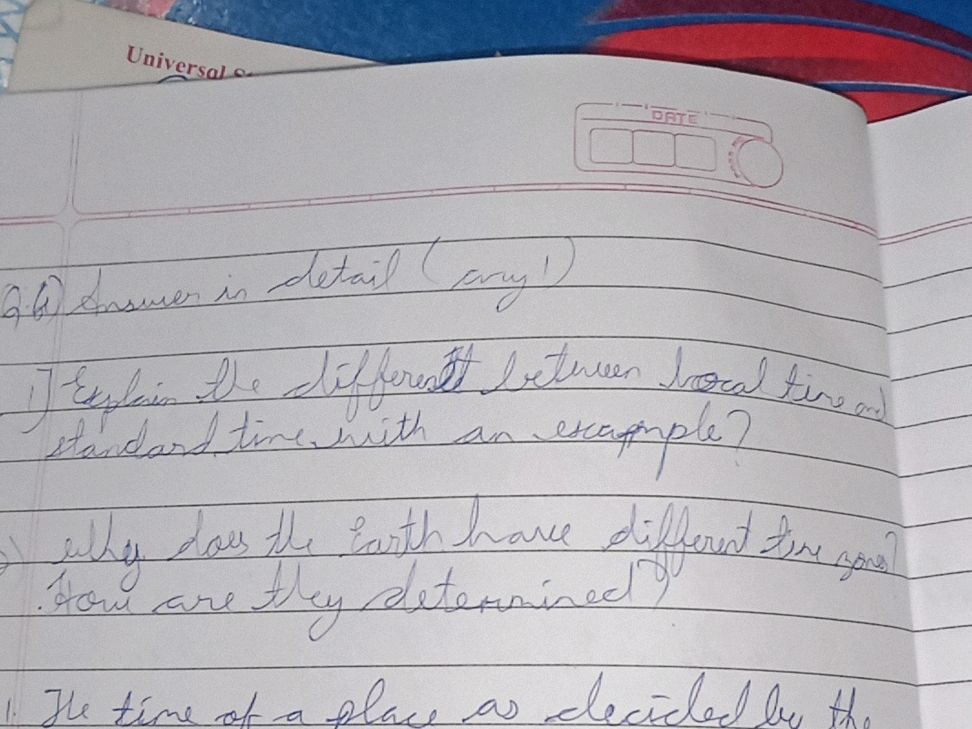 Universal
DATE
Q.6) Answer in detail (any 1)
1] Explain the different between local time and
standard time with an example?
2) Why does the Earth have different time zones?
How are they determined?
1. The time of a place as decided by the